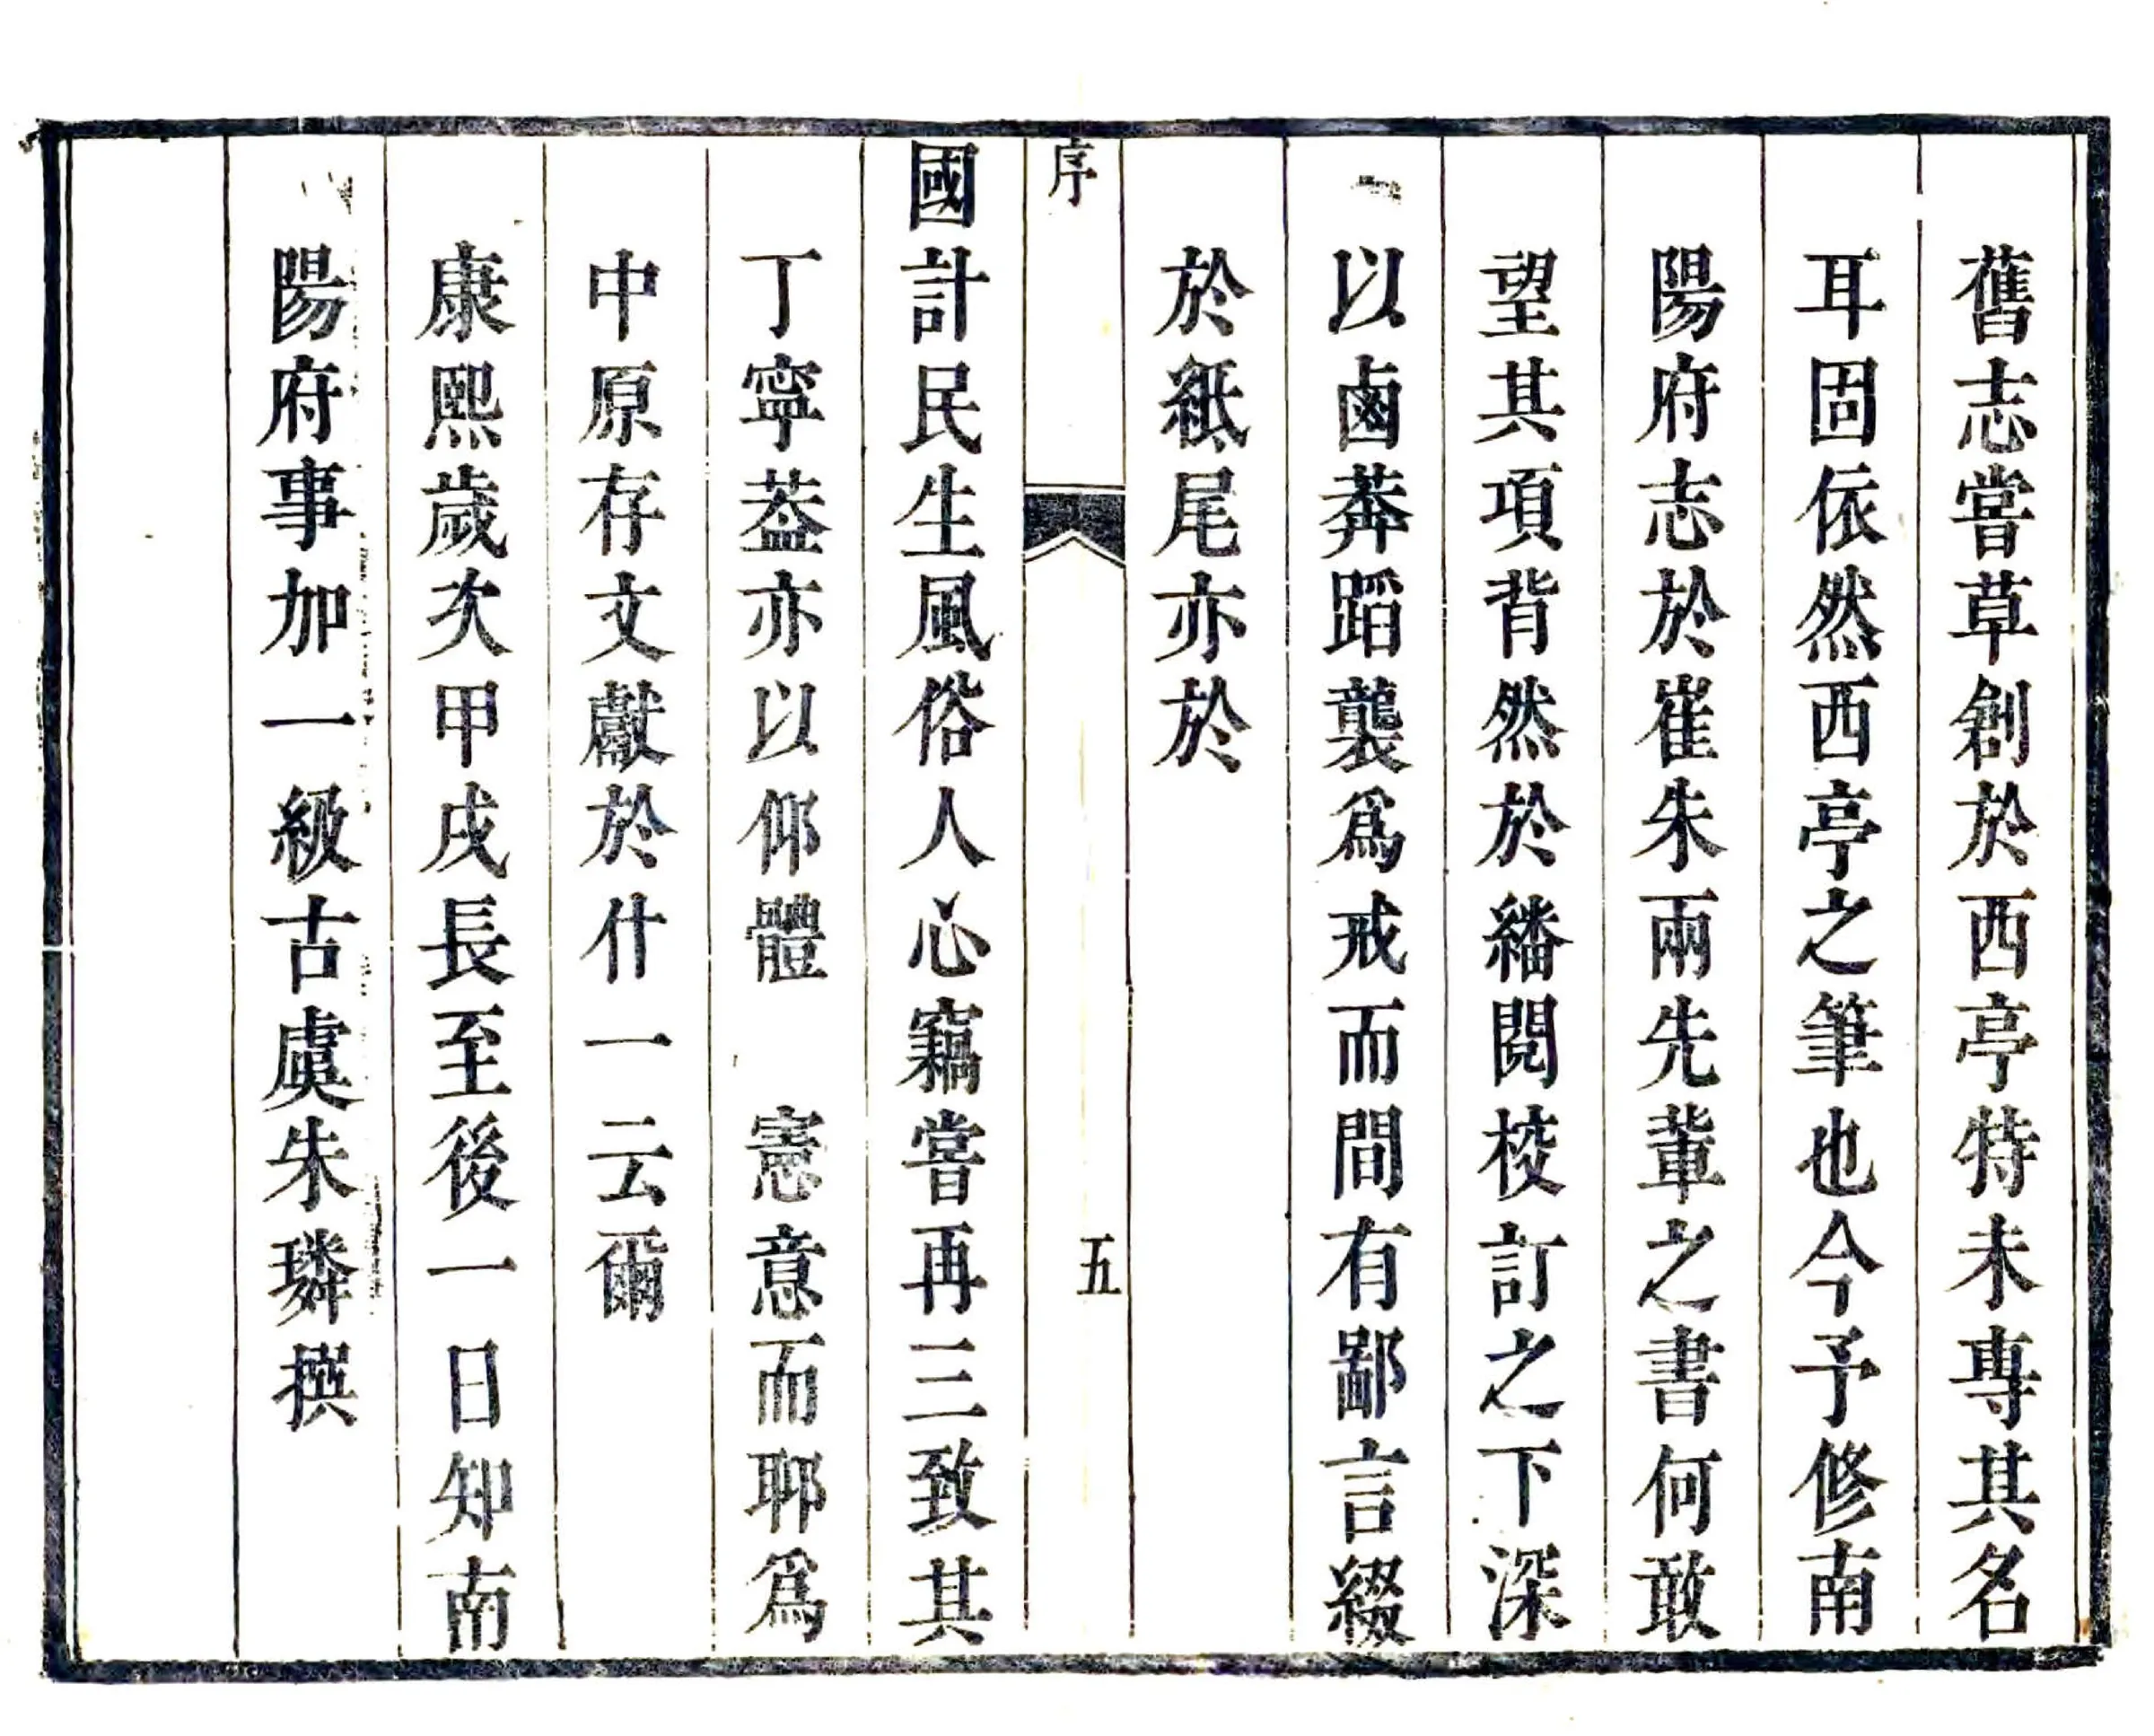 舊志嘗草創於西亭特未專其名
耳固依然西亭之筆也今予修南
陽府志於崔朱兩先輩之書何敢
望其項背然於繙閱校訂之下深
以鹵莽蹈襲爲戒而間有鄙言綴
於紙尾亦於
序
五
國計民生風俗人心竊嘗再三致其
丁寧葢亦以仰體　憲意而聊爲
中原存文獻於什一云爾
康熙歲次甲戌長至後一日知南
陽府事加一級古虞朱璘撰